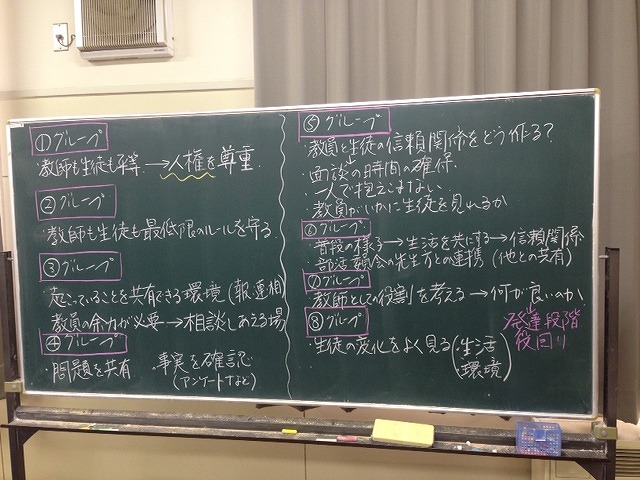 ①グループ
・教師も生徒も平等→人権を尊重
②グループ
・教師も生徒も最低限のルールを守る
③グループ
・起こっていることを共有できる環境(報・連・相)
教員の余力が必要→相談しあえる場
④グループ
・問題を共有 ・事実を確認
(アンケートなど)
⑤グループ
・教員と生徒の信頼関係をどう作る?
・面談の時間の確保
・一人で抱えこまない
・教員がいかに生徒を見れるか
⑥グループ
・普段の様子→生活を共にする→信頼関係
・部活顧問の先生方との連携(他との共有)
⑦グループ
・教師としての役割を考える→何が良いのか
発達段階
役回り
⑧グループ
・生徒の変化をよく見る(・生活
・環境)